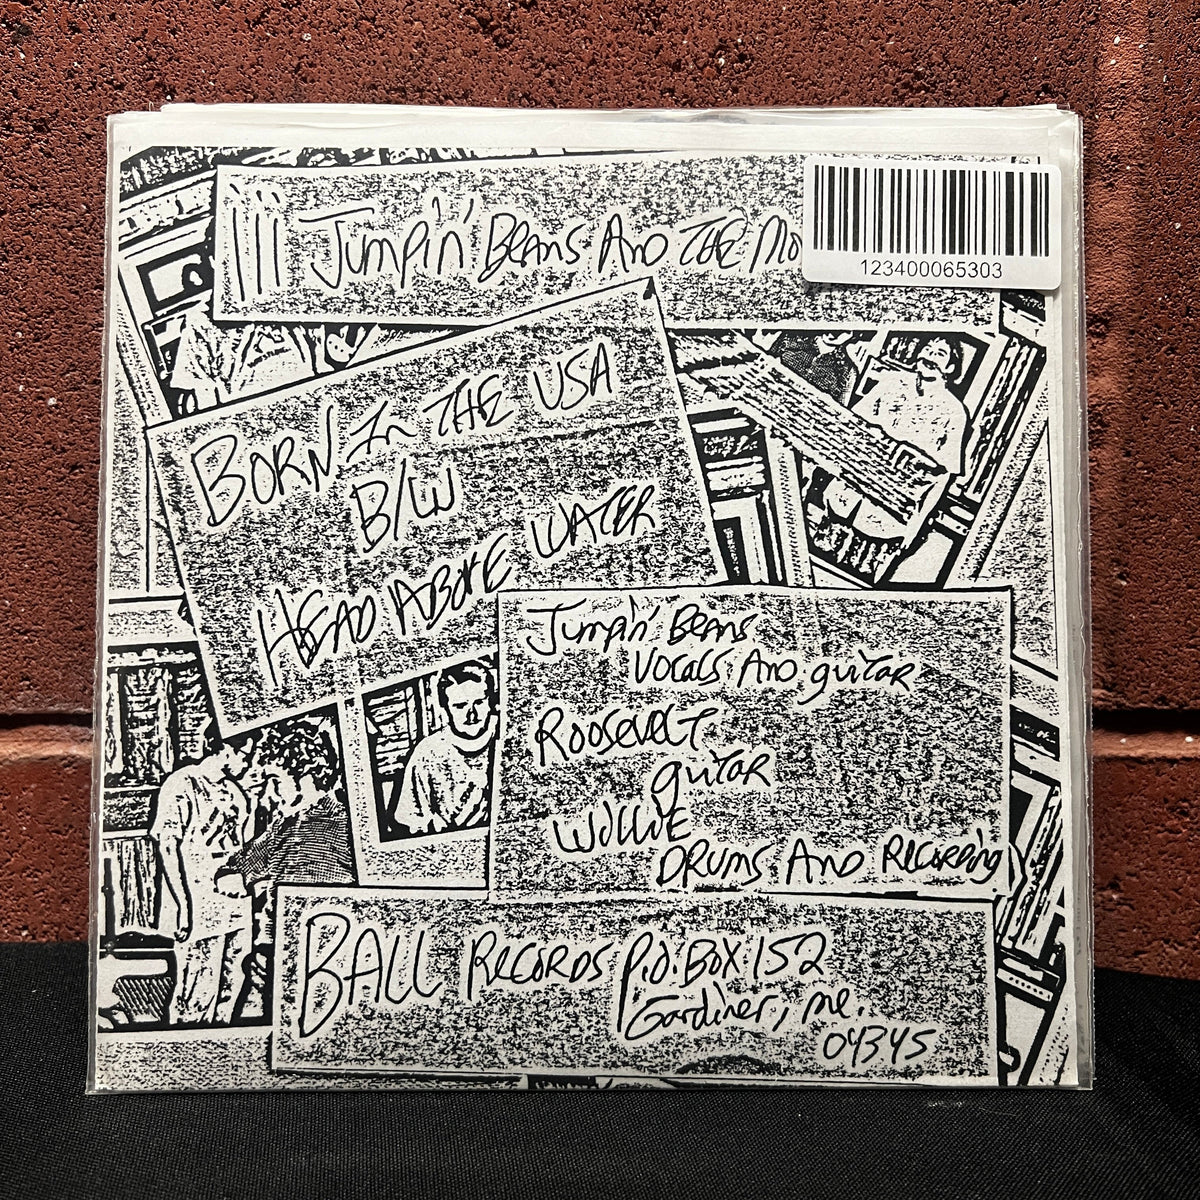 Jumpin' Beans And THE Mo
123400065303
BORN In THE USA
B/W
HEAD ABOVE WATER
Jumpin' Beans
Vocals And guitar
Roosevelt
guitar
WiLLiE
DRUMS And Recording
BALL Records P.O. Box 152
Gardiner, Me.
04345